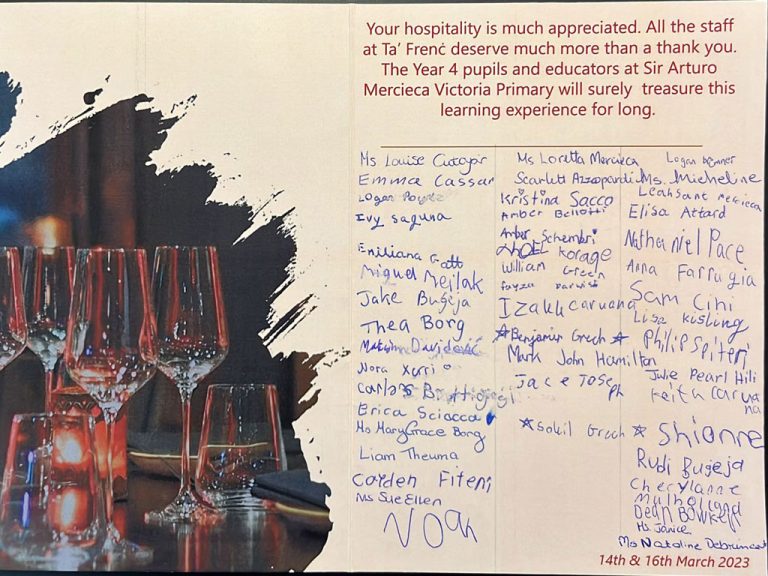 Your hospitality is much appreciated. All the staff
at Ta' Frenċ deserve much more than a thank you.
The Year 4 pupils and educators at Sir Arturo
Mercieca Victoria Primary will surely treasure this
learning experience for long.
Ms Louise Cutajar
Emma Cassar
Logan
Ivy Saguna
Emiliana Gatt
Miguel Mejlak
Jake Buġeja
Thea Borg
Nora Xerri
Carlos
Erica Sciacca
Ms MaryGrace Borg
Liam Theuma
Carden Fiteni
Ms Sue Ellen
Noah
Ms Loretta Mercieca
Scarlett Azzopardi
Kristina Sacco
Amber Bellotti
Amber Schembri
Korage
William Green
Izakk Caruana
Benjamin Grech
Mark John Hamilton
Jace Joseph
Soleil Grech
Logan
Ms. Micheline
Leahsant Mercieca
Elisa Attard
Nathaniel Pace
Anna Farrugia
Sam Cini
Lisa Kisling
Philip Spiteri
Julie Pearl Hili
Keith Caruana
Shianne
Rudi Buġeja
Cherylanne
Mulholland
Dean Bowker
Ms. Janice
Ms Nataline Debrincat
14th & 16th March 2023